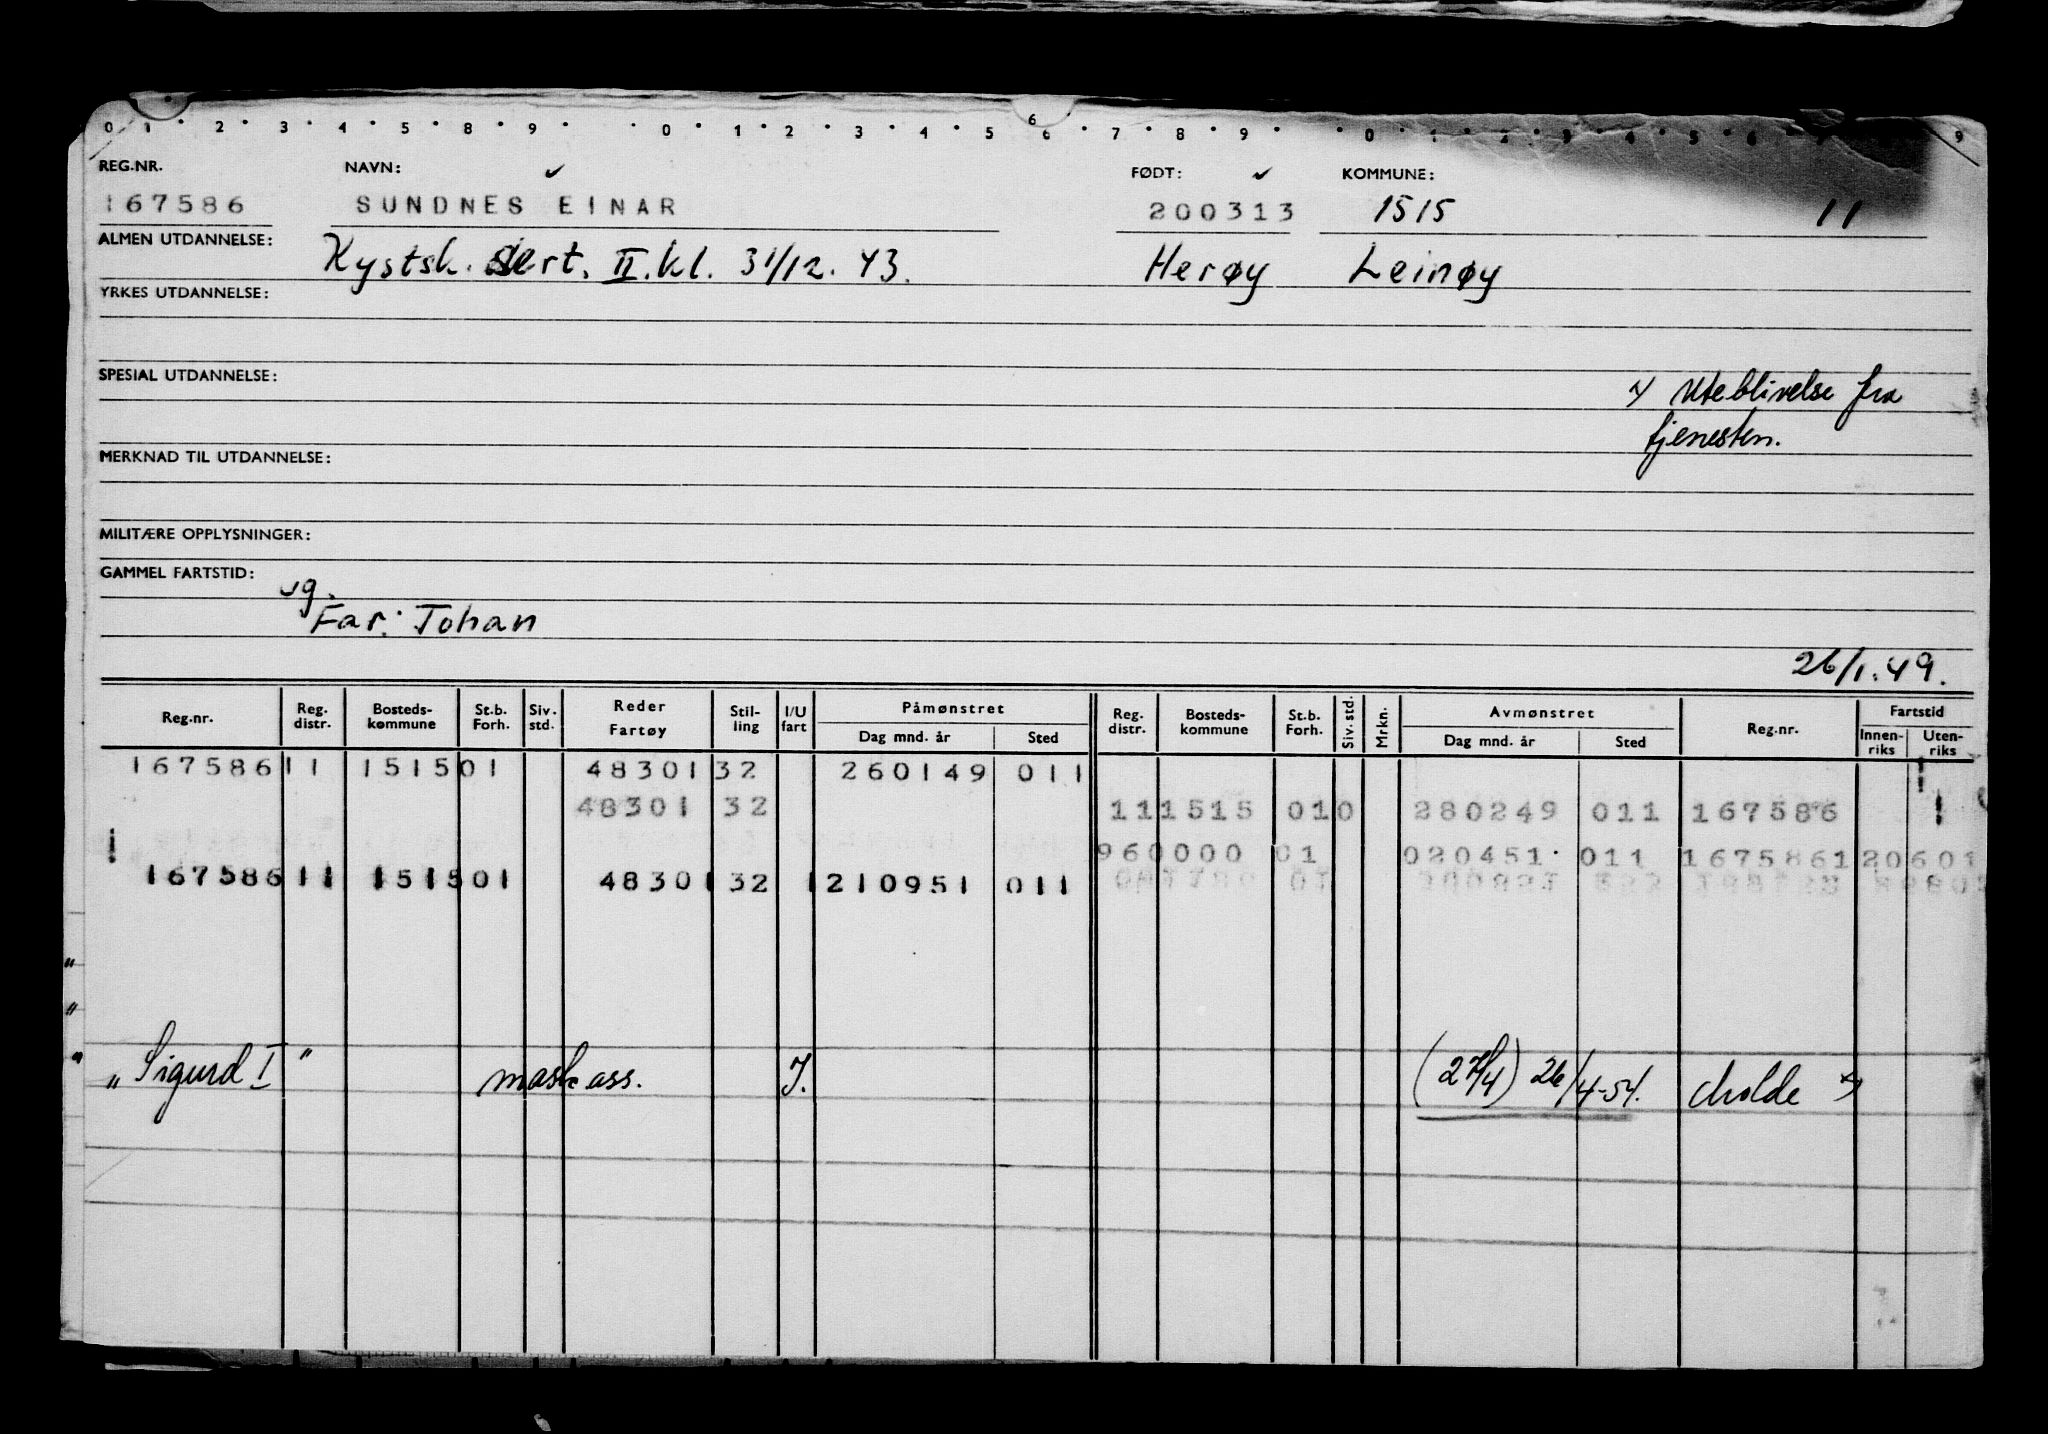 0 1 2 3 4 5 8 9 0 1 2 3 4 5 6 6 7 8 9 0 1 2 3 4 5 6 9
REG.NR. NAVN: FØDT: KOMMUNE:
167586 SUNDNES EINAR 200313 1515 11
ALMEN UTDANNELSE: Kystsk. sert. II. kl. 31/12. 43. Herøy Leinøy
YRKES UTDANNELSE:
SPESIAL UTDANNELSE:
Uteblivelse fra
tjenesten.
MERKNAD TIL UTDANNELSE:
MILITÆRE OPPLYSNINGER:
GAMMEL FARTSTID:
ug.
Far: Johan
26/1.49.
Reg.nr. Reg. distr. Bosteds- kommune St.b. Forh. Siv. std. Reder Fartøy Stil- ling I/U fart Påmønstret Dag mnd. år Sted Reg. distr. Bosteds- kommune St.b. Forh. Siv. std. Mrkn. Avmønstret Dag mnd. år Sted Reg.nr. Fartstid Innen- riks Uten- riks
167586 11 1515 01 48301 32 260149 011
48301 32 11 1515 010 280249 011 167586
960000 01 020451 011 167586 120601
167586 11 1515 01 48301 32 1 210951 011
„Sigurd I" mask ass. I. (27/4) 26/4-54. Molde